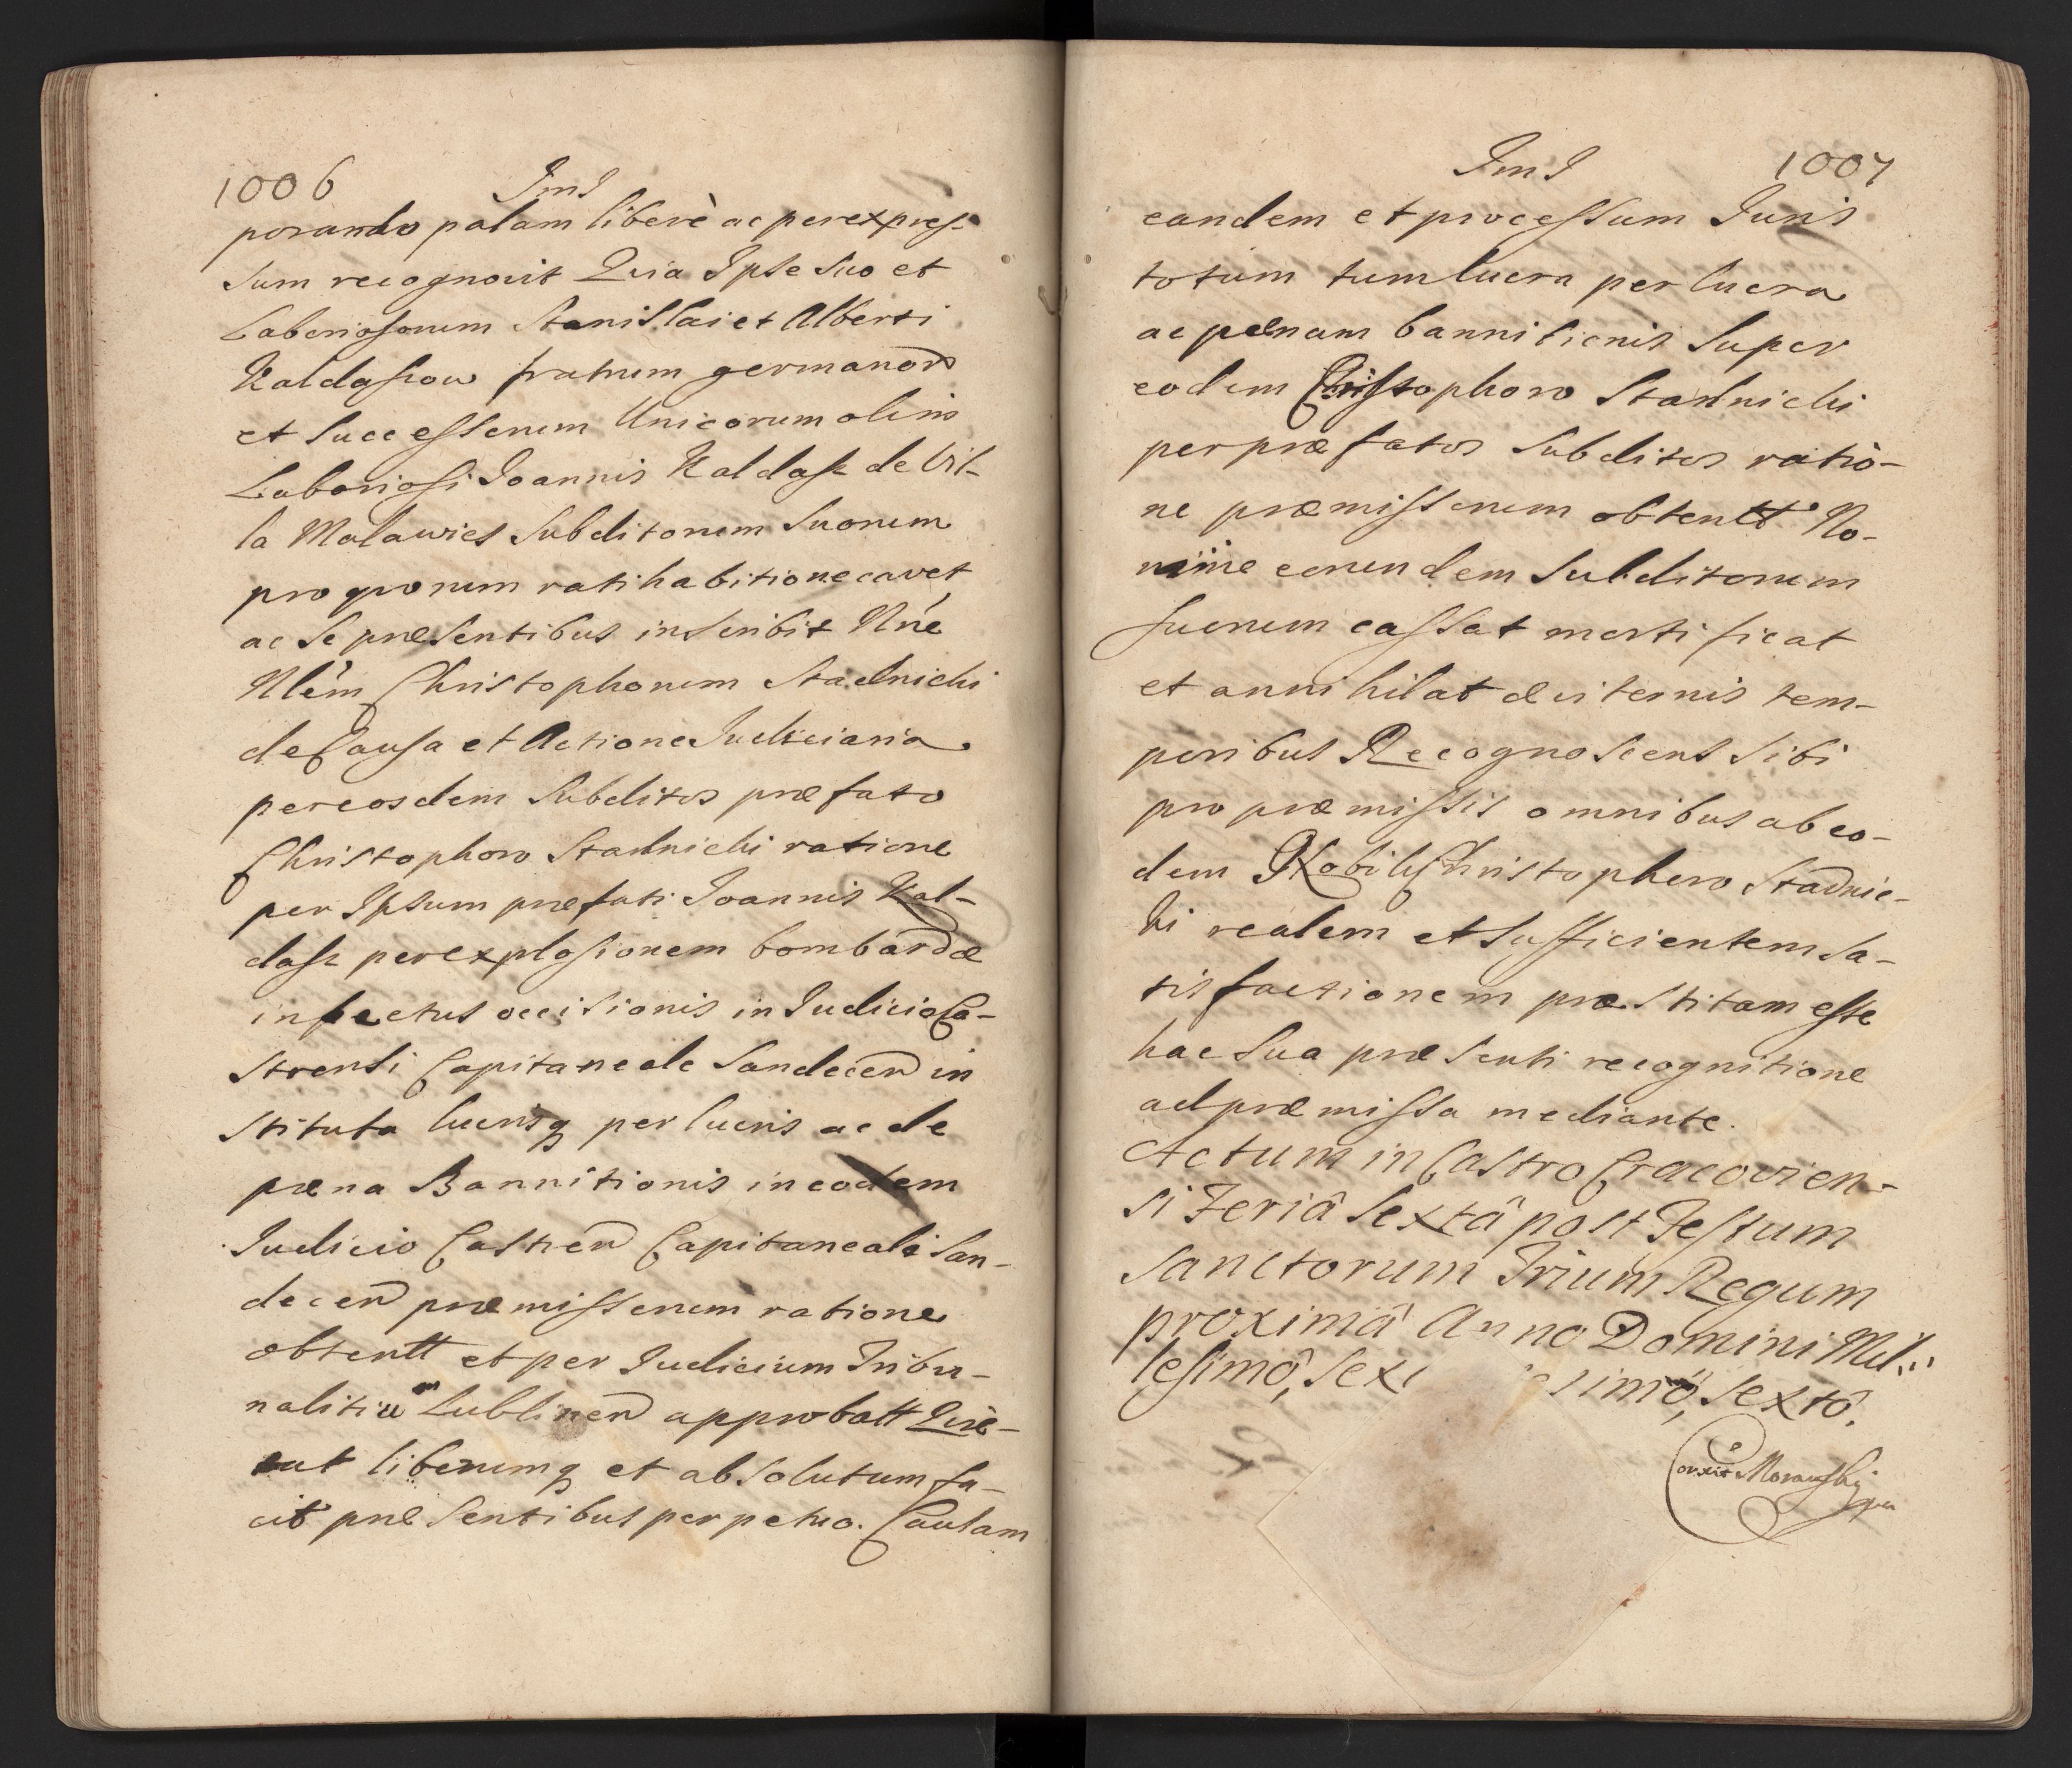 1006
ImJ
porando palam liberè ac per expres-
sum recognovit Quia Ipse suo et
Laboriosorum Stanislai et Alberti
Kaldaszow fratrum germanorũ
et Successorum Unicorum olim
Laboriosi Joannis Kaldasz de Vil-
la Malawies Subditorum Suorum
pro quorum ratihabitione cavet
ac Se præsentibus inscribit
Christophorum Stadnicki
de Causa et Actione Judiciaria
per eosdem Subditos præfato
Christophoro Stadnicki ratione
per Ipsum præfati Joannis Kal-
dasz per explosionem bombardæ
infectus occisionis in Judicio Ca-
strensi Capitaneale Sandecen̄ in
stituta lucrisq per lucris ac de
pæna Bannitionis in eodem
Judicio Castren̄ Capitaneali San-
decen̄ præmissorum ratione
obtentt et per Judicium Tribu-
nalitiũ Lublinen̄ approbatt Qui-
etat liberumq et absolutum fa-
cit præsentibus perpetuo. Causam
ImJ 1007
eandem et processum Juris
totum tum lucra per lucra
ac pænam bannitionis Super
eodem Christophoro Stadnicki
per præfatos Subditos ratio-
ne præmissorum obtentt No-
mine eorundem Subditorum
Suorum cassat mortificat
et annihilat æviternis tem-
poribus Recognoscens Sibi
pro præmissis omnibus ab eo-
dem Nobili Christophoro Stadnic-
ki realem et Sufficientem Sa-
tisfactionem præstitam esse
hac Sua præsenti recognitione
ad præmissa mediante.
Actum in Castro Cracovien-
si Feriâ Sextâ post Festum
Sanctorum Trium Regum
proximâ Anno Domini Mil-
lesimô, Sex simô, Sextô.
Corexit Morawski
mpa